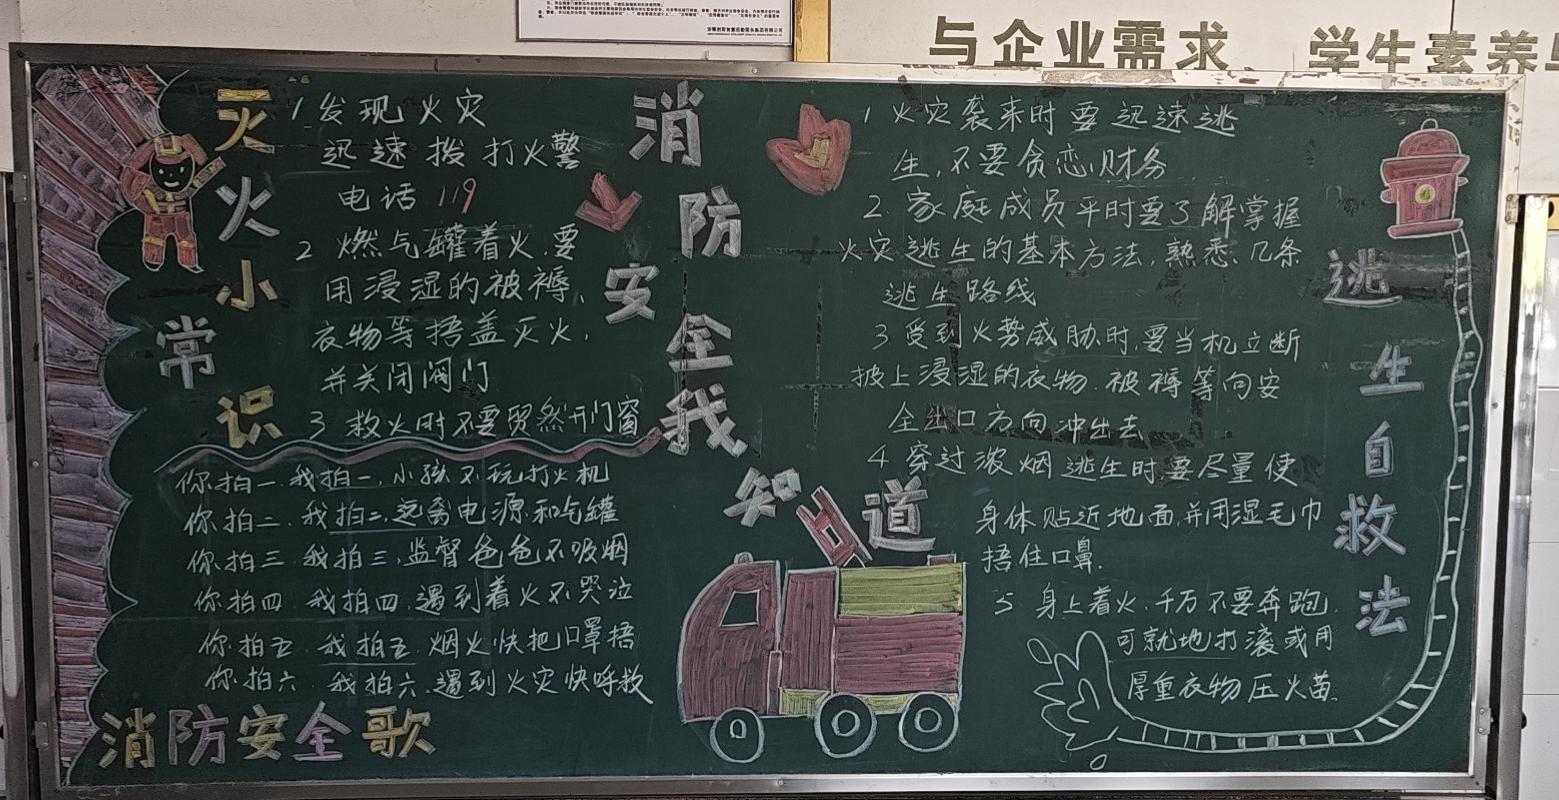 与企业需求 学生素养与
灭火小常识
1 发现火灾
迅速拨打火警
电话 119
2 燃气罐着火,要
用浸湿的被褥、
衣物等捂盖灭火,
并关闭阀门
3 救火时不要贸然开门窗
你拍一.我拍一,小孩不玩打火机
你拍二.我拍二,远离电源和气罐
你拍三.我拍三,监督爸爸不吸烟
你拍四.我拍四.遇到着火不哭泣
你拍五.我拍五.烟火快把口罩捂
你拍六.我拍六.遇到火灾快呼救
消防安全歌
消防安全我知道
1 火灾袭来时要迅速逃
生,不要贪恋财务
2.家庭成员平时要了解掌握
火灾逃生的基本方法,熟悉几条
逃生路线
3 受到火势威胁时,要当机立断
披上浸湿的衣物.被褥等向安
全出口方向冲出去
4 穿过浓烟逃生时要尽量使
身体贴近地面,并用湿毛巾
捂住口鼻.
5 身上着火.千万不要奔跑.
可就地打滚或用
厚重衣物压火苗.
逃生自救法